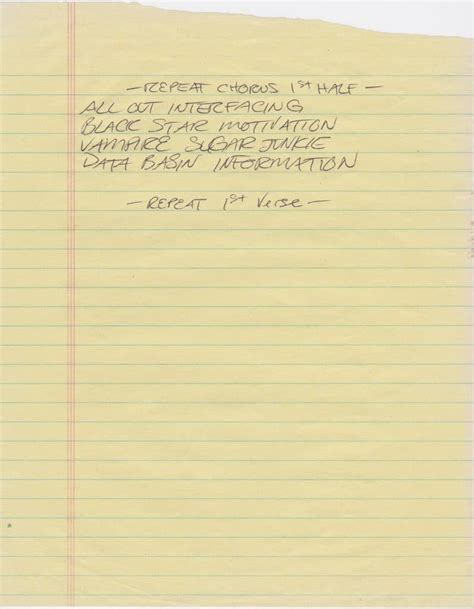 — REPEAT CHORUS 1ST HALF —
ALL OUT INTERFACING
BLACK STAR MOTIVATION
VAMPIRE SUGAR JUNKIE
DATA BASIN INFORMATION
— REPEAT 1ST Verse —